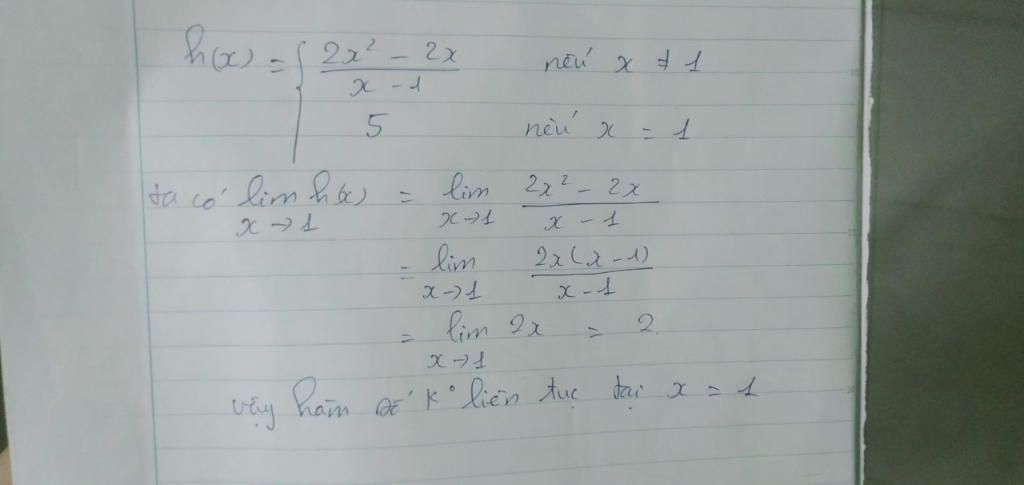 h(x) = { (2x² - 2x)/(x - 1) nếu x ≠ 1
5 nếu x = 1
ta có lim h(x) = lim (2x² - 2x)/(x - 1)
x→1 x→1
= lim (2x(x - 1))/(x - 1)
x→1
= lim 2x = 2.
x→1
vậy hàm số K° liên tục tại x = 1